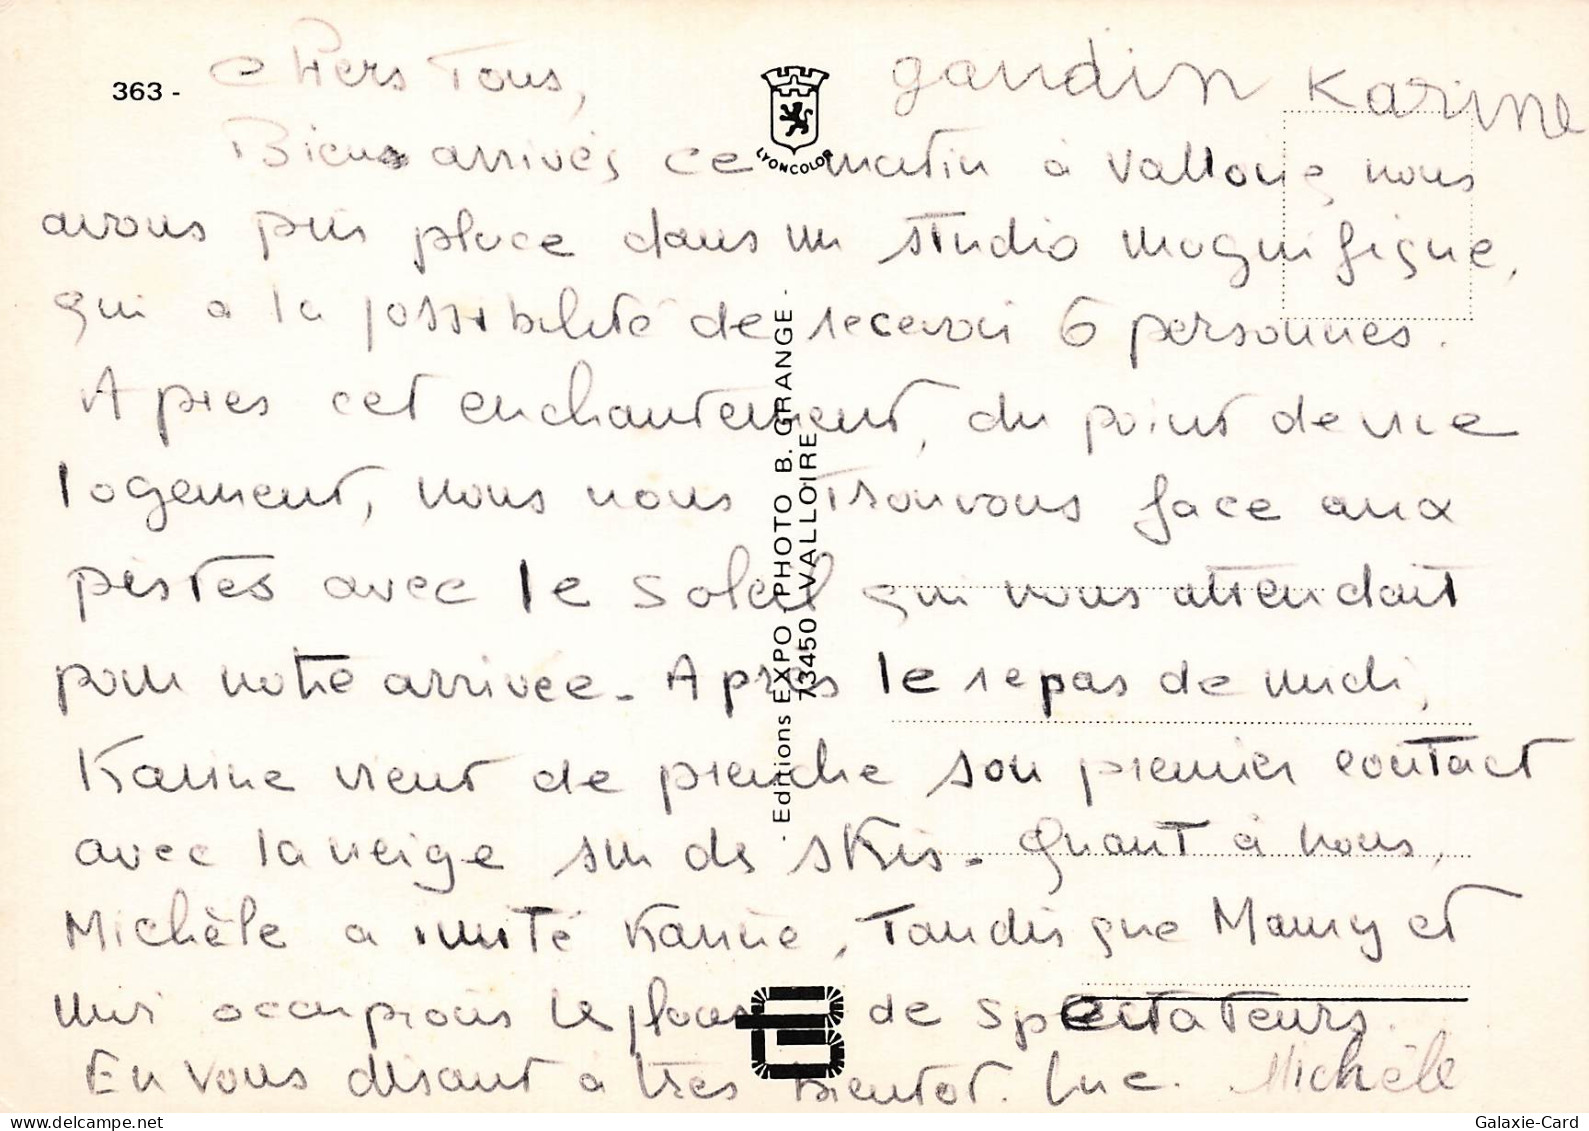 363 -
Chers Tous,
gaudin Karine
LYONCOLOR
Bien arrivés ce matin à Valloire nous
avons pris place dans un studio magnifique,
qui a la possibilité de recevoir 6 personnes.
Après cet enchantement, du point de vue
logement, nous nous trouvons face aux
pistes avec le soleil qui nous attendait
pour notre arrivée - Après le repas de midi,
Karine vient de prendre son premier contact
avec la neige sur des skis - Quant à nous,
Michèle a imité Karine, Tandis que Mamy et
moi occupions les places de Spectateurs.
En vous disant à très bientot. Luc. Michèle
- Editions EXPO - PHOTO B. GRANGE -
73450 VALLOIRE
delcampe.net
Galaxie-Card